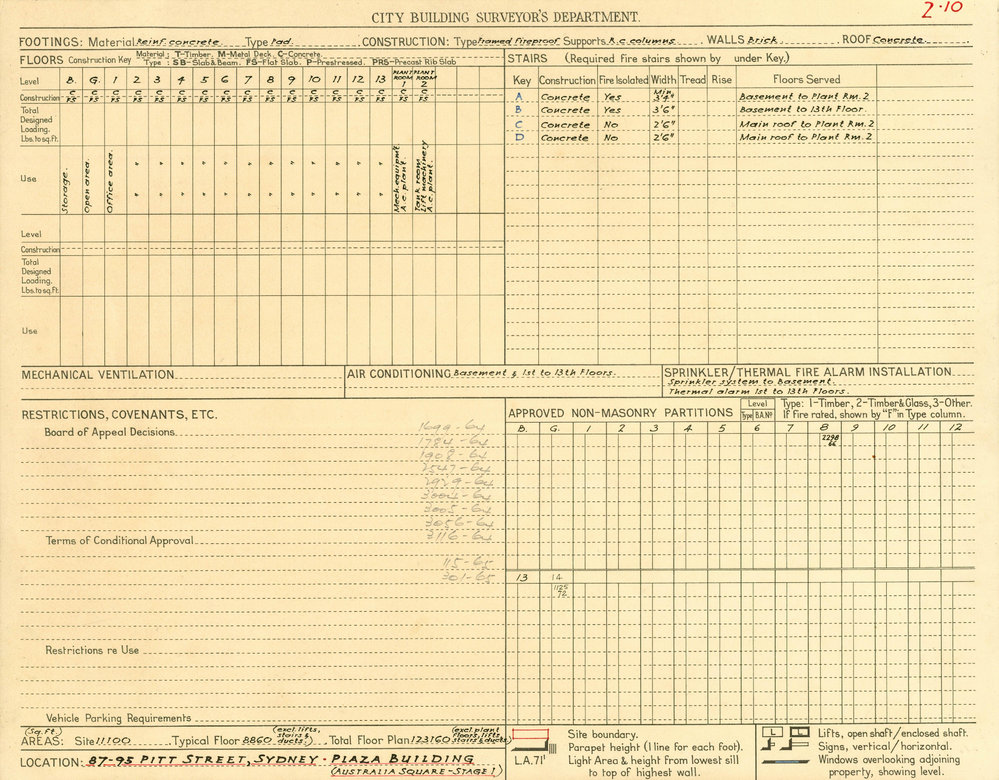 2·10
CITY BUILDING SURVEYOR'S DEPARTMENT.
FOOTINGS: Material Reinf. concrete Type Pad. CONSTRUCTION: Type Framed fireproof Supports R.c. columns WALLS Brick ROOF Concrete
FLOORS Construction Key Material: T-Timber. M-Metal Deck. C-Concrete.
Type: SB-Slab & Beam. FS-Flat Slab. P-Prestressed. PRS-Precast Rib Slab
Level B. G. 1 2 3 4 5 6 7 8 9 10 11 12 13 PLANT ROOM 1 PLANT ROOM 2
Construction C C C C C C C C C C C C C C C C C
FS FS FS FS FS FS FS FS FS FS FS FS FS FS FS FS FS
Total
Designed
Loading.
Lbs.to sq.ft.
Use Storage. Open area. Office area. " " " " " " " " " " " " Mech. equipm't. A.c. plant. Tank room Lift machinery A.c. plant.
" " " " " " " " " " " "
Level
Construction
Total
Designed
Loading.
Lbs.to sq.ft.
Use
STAIRS (Required fire stairs shown by under Key.)
Key Construction Fire Isolated Width Tread Rise Floors Served
A Concrete Yes Min 3'4" Basement to Plant Rm. 2
B Concrete Yes 3'6" Basement to 13th Floor.
C Concrete No 2'6" Main roof to Plant Rm. 2
D Concrete No 2'6" Main roof to Plant Rm. 2
MECHANICAL VENTILATION
AIR CONDITIONING Basement & 1st to 13th Floors.
SPRINKLER/THERMAL FIRE ALARM INSTALLATION
Sprinkler system to Basement.
Thermal alarm 1st to 13th Floors.
RESTRICTIONS, COVENANTS, ETC.
Board of Appeal Decisions
1699-64
1784-64
1908-64
2547-64
2929-64
3004-64
3005-64
3056-64
3116-64
Terms of Conditional Approval
115-65
301-65
Restrictions re Use
Vehicle Parking Requirements
APPROVED NON-MASONRY PARTITIONS Level Type B.A.No Type: 1-Timber, 2-Timber & Glass, 3-Other.
If fire rated, shown by "F" in Type column.
B. G. 1 2 3 4 5 6 7 8 9 10 11 12
2298
66
13 14
1125
72
AREAS: (Sq.ft.) Site 11100 Typical Floor 8860 (excl. lifts, stairs & ducts.) Total Floor Plan 123160 (excl. plant floors, lifts stairs & ducts)
LOCATION: 87-95 PITT STREET, SYDNEY - PLAZA BUILDING
(AUSTRALIA SQUARE-STAGE 1)
Site boundary.
Parapet height (1 line for each foot).
L.A.71' Light Area & height from lowest sill
to top of highest wall.
L Lifts, open shaft/enclosed shaft.
Signs, vertical/horizontal.
Windows overlooking adjoining
property, showing level.